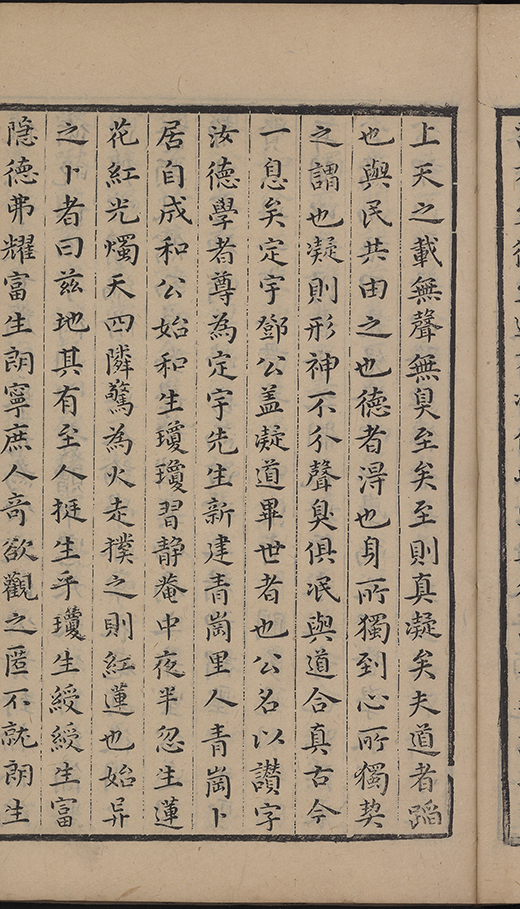 上天之載無聲無臭至矣至則真凝矣夫道者蹈
也與民共由之也德者淂也身所獨到心所獨契
之謂也凝則形神不分聲臭俱泯與道合真古今
一息矣定宇鄧公盖凝道畢世者也公名以讚字
汝德學者尊為定宇先生新建青崗里人青崗卜
居自成和公始和生瓊瓊習静菴中夜半忽生蓮
花紅光燭天四隣驚為火走撲之則紅蓮也始异
之卜者曰兹地其有至人挺生乎瓊生綬綬生富
隐德弗耀富生朗寧庶人奇欲觀之匿不就朗生